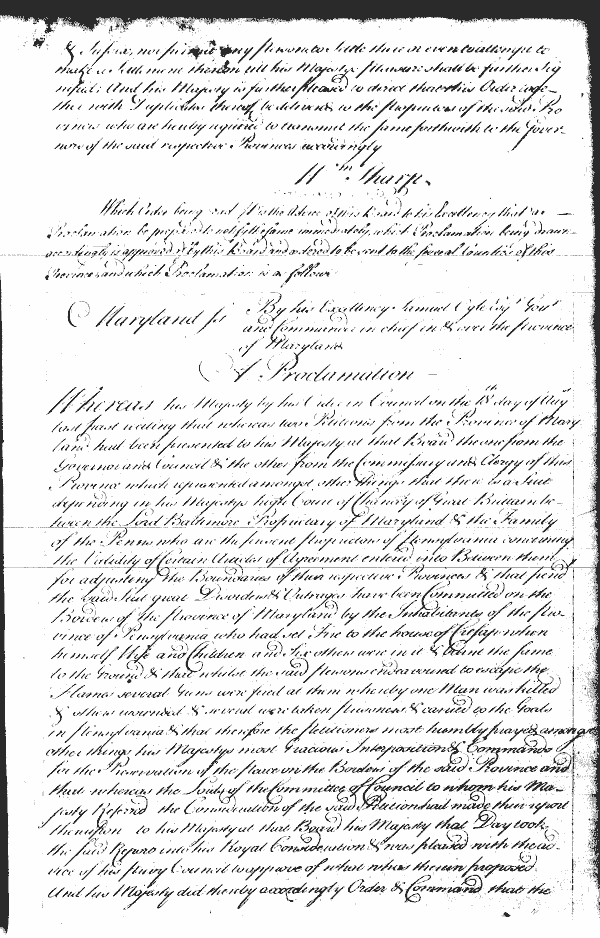 & Sussex, nor permit any persons to Settle there or even to attempt to
make a Settlement thereon till his Majestys pleasure shall be further Sig
nified: And his Majesty is further pleased to direct that this Order toge-
ther with Duplicates thereof be delivered to the proprietors of the said Pro
vinces who are hereby required to transmit the same forthwith to the Gover-
nors of the said respective Provinces accordingly
Wm Sharpe
Which Order being read it is the Advice of this Board to his Excellency that a
Proclamation be prepared to notifye same immediately, which Proclamation being drawn
accordingly is approved of by this Board and ordered to be sent to the several Counties of this
Province and which Proclamation is as follows
Maryland ss By his Excellency Samuel Ogle Esqr Govr
and Commander in chief in & over the province
of Maryland
A Proclamation
Whereas his Majesty by his Order in Council on the 18th day of Augt
last past reciting that whereas two Petitions from the Province of Mary
land had been presented to his Majesty at that Board the one from the
Governor and Council & the other from the Commissary and Clergy of this
Province which represented amongst other things that there is a Suit
depending in his Majestys high Court of Chancery of Great Brittain be-
tween the Lord Baltimore Proprietary of Maryland & the Family
of the Penns who are the present proprietors of Pensylvania concerning
the Validity of Certain Articles of Agreement entered into Between them
for adjusting the Boundaries of their respective Provinces & that pend
the said Suit great Disorders & Outrages have been Committed on the
Borders of the province of Maryland by the Inhabitants of the pro-
vince of Pensylvania who had set Fire to the house of Cresap when
himself Wife and Children and Six others were in it & burnt the same
to the Ground & that whilst the said persons endeavoured to escape the
Flames several Guns were fired at them whereby one Man was killed
& others wounded & several were taken prisoners & carried to the Goals
in Pensylvania & that therefore the petitioners most humbly prayed amongst
other things his Majestys most Gracious Interposition & Commands
for the Preservation of the peace on the Borders of the said Province and
that whereas the Lords of the Committee of Council to whom his Ma-
jesty Referred the Consideration of the said Petition had made their report
thereupon to his Majesty at that Board his Majesty that Day took
the said Report into his Royal Consideration & was pleased with the ad-
vice of his privy Council to approve of what was therein proposed
And his Majesty did thereby accordingly Order & Command that the